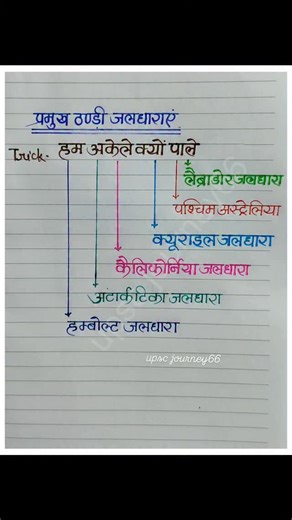 प्रमुख ठण्डी जलधाराएं
Trick- हम अकेले क्यों पाले
लैब्राडोर जलधारा
पश्चिम अस्ट्रेलिया
क्यूराइल जलधारा
कैलिफोर्निया जलधारा
अंटार्कटिका जलधारा
हम्बोल्ट जलधारा
upsc journey66